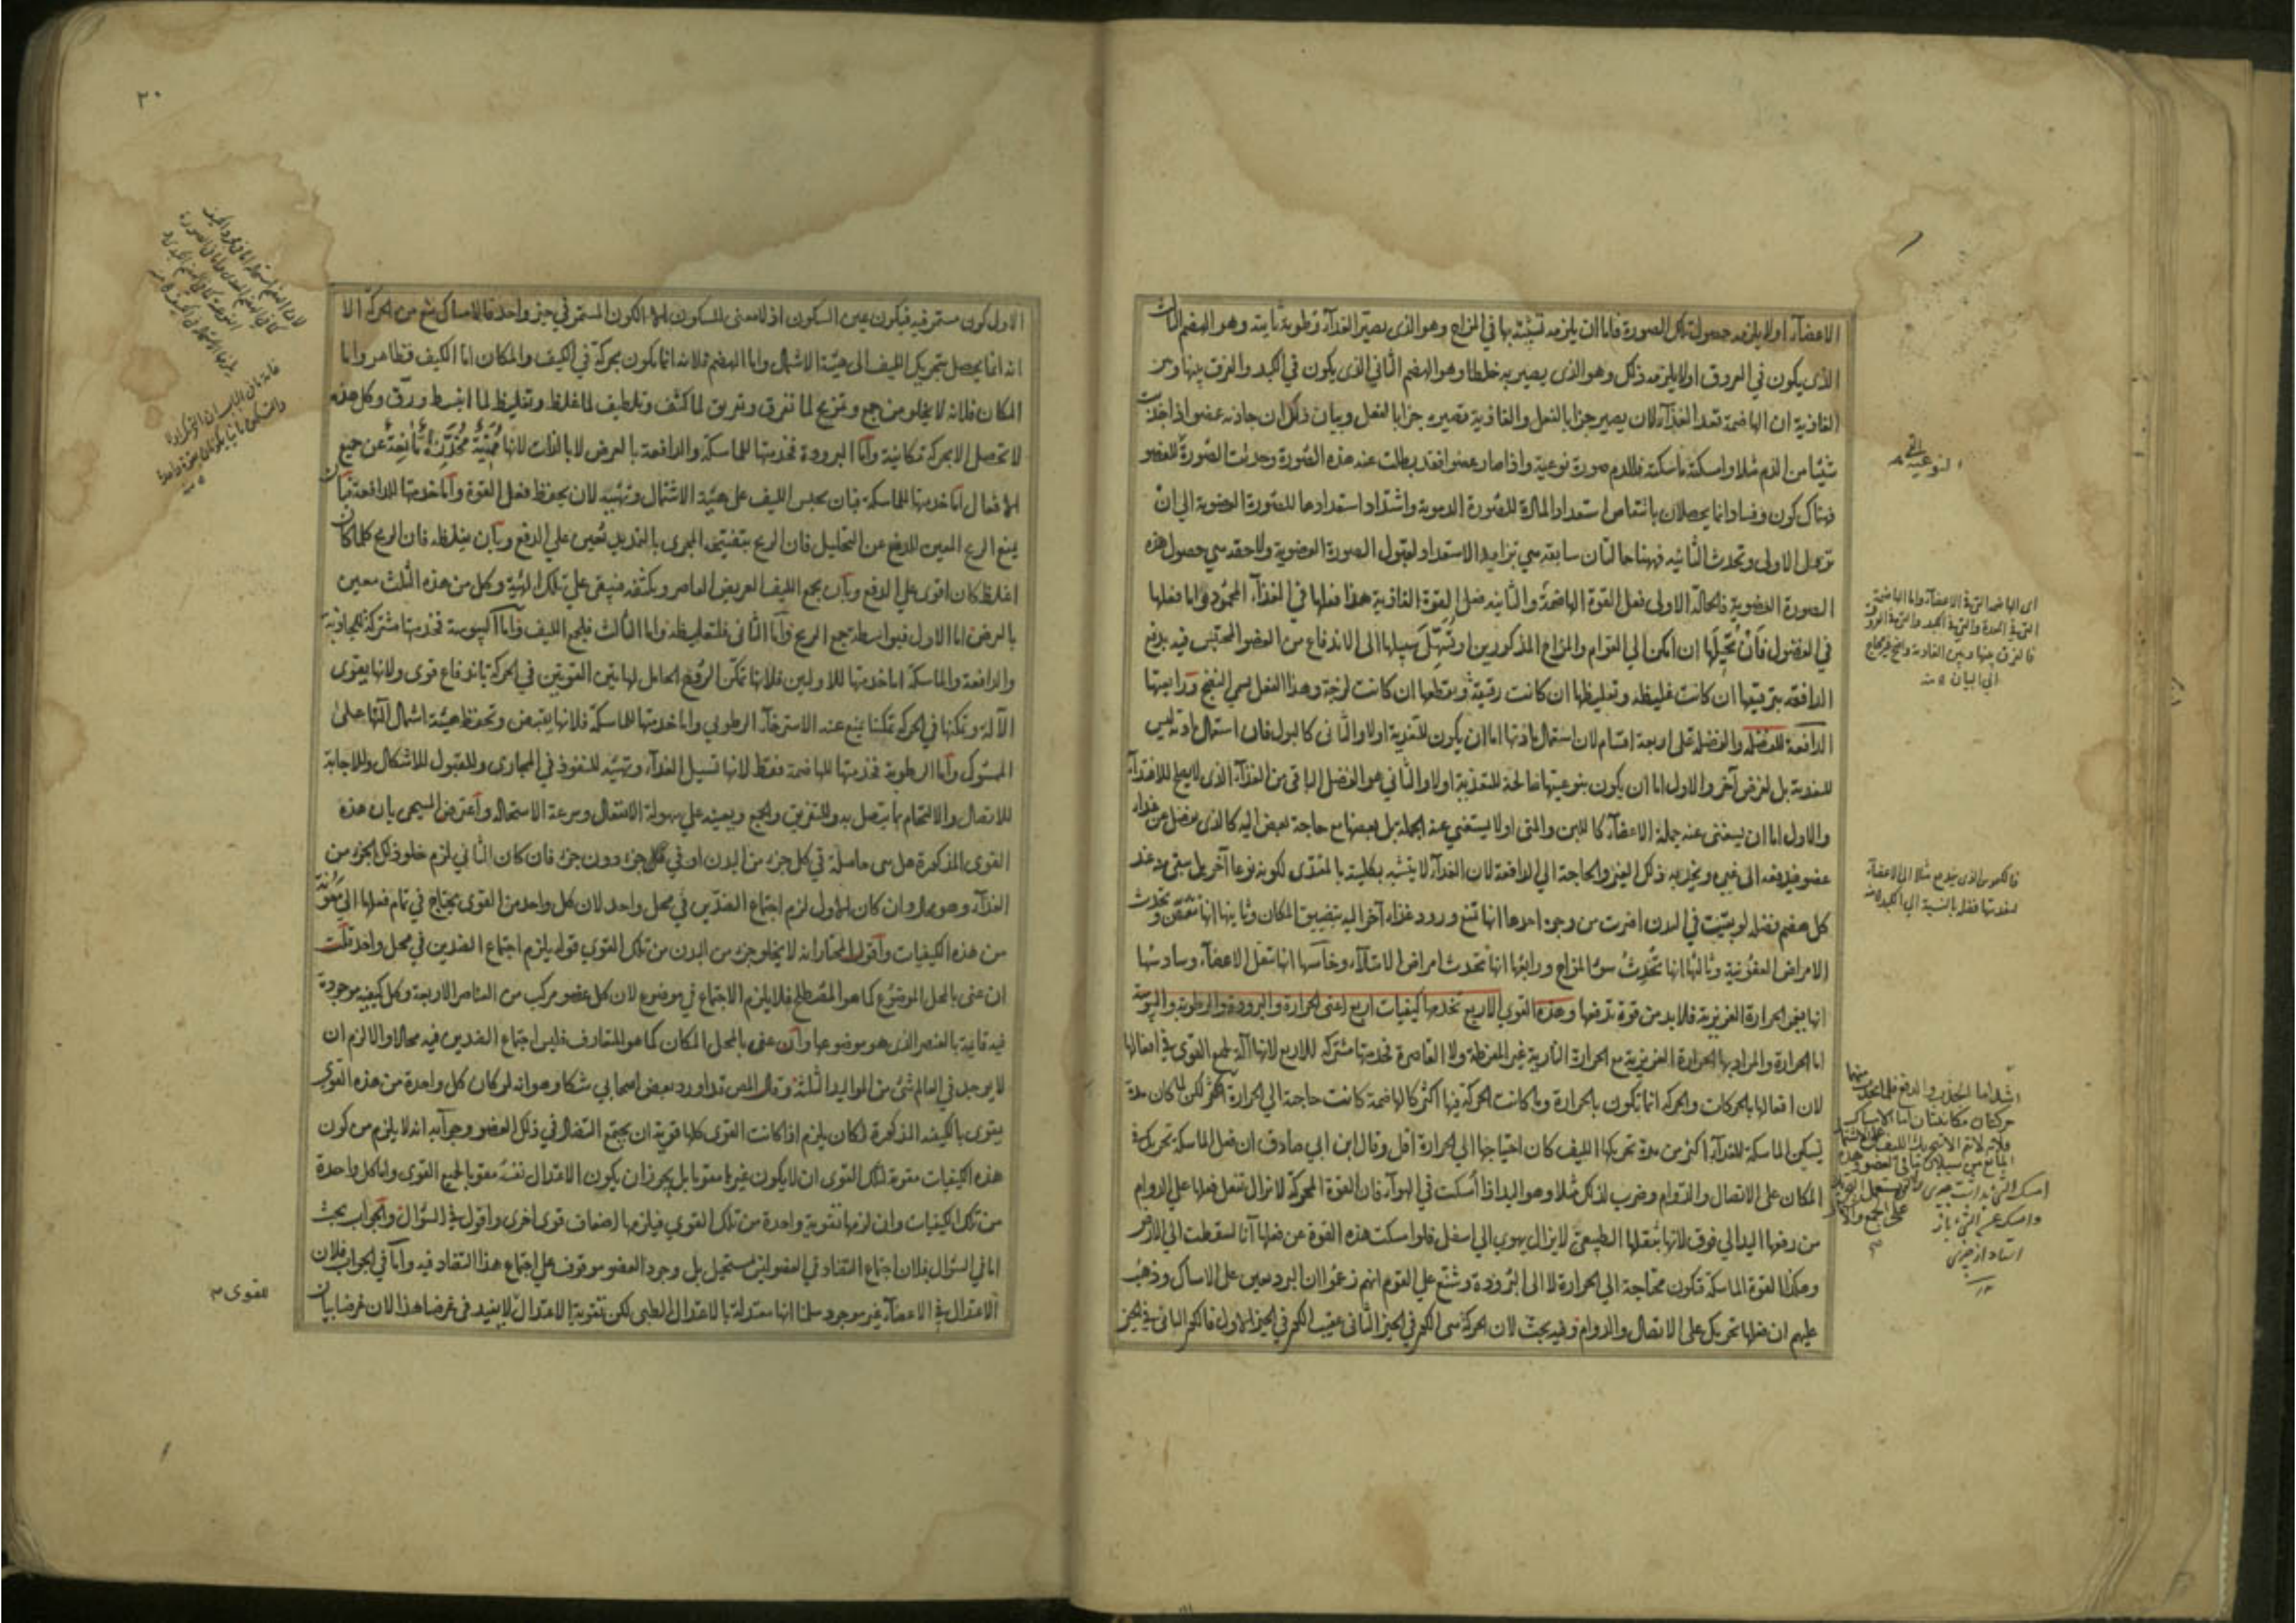 الاعضآء اولا يلزمه حصول تلك الصورة فاما ان يلزمه تشبيه بها في المزاج وهو الذى يصير الغذآء رطوبة ثانية وهو الهضم الثالث
الذى يكون في العروق اولا يلزمه ذلك وهو الذى يصير به خلطا وهو الهضم الثاني الذى يكون في الكبد والفرق بينها وبين
الغاذية ان الهاضمة تعد الغذآء لان يصير جزا بالفعل والغاذية تصيره جزا بالفعل وبيان ذلك ان جاذبة عضو اذا جذبت
شيئا من الدم مثلا وامسكته ماسكته فللدم صورة نوعية واذا صار عضوا فقد بطلت عنه هذه الصورة وحدثت الصورة للعضو
فهناك كون وفساد وانما يحصلان بانتقاص استعداد المادة للصورة الدموية واشتداد استعدادها للصورة العضوية الى ان
تزول الاولى وتحدث الثانيه فههنا حالتان سابقه هي تزايد الاستعداد لقبول الصورة العضوية ولاحقه هي حصول هذه
الصورة العضوية فالحالة الاولى فعل القوة الهاضمة والثانيه فعل القوة الغاذية هذا فعلها في الغذآء المحمود واما فعلها
في الفضول فان تحيلها ان امكن الى القوام والمزاج المذكورين او تسهل سبيلها الى الاندفاع من العضو المحتبس فيه بدفع
الدافعه بترقيقها ان كانت غليظه وتغليظها ان كانت رقيقة وبقطعها ان كانت لزجة وهذا الفعل يسمى النضج ورابعها
الدافعة للفضله والفضله على اربعة اقسام لان استعمال مادتها اما ان يكون للتغذية اولا والثانى كالبول فان استعمال مادته ليس
للتغذية بل لغرض آخر والاول اما ان يكون بنوعيتها صالحة للتغذية اولا والثاني هو الفضل الباقى من الغذآء الذى لا يصلح للاغتذآء
والاول اما ان يستغنى عنه جملة الاعضآء كاللبن والمنى اولا يستغنى عنه الجملة بل بعضها مع حاجة بعض اليه كالذى يفضل عن غذآء
عضو فيدفعه الى غيره ويغذيه ذلك الغير والحاجة الى الدافعة لان الغذآء لا يتشبه بكليته بالمغتذى لكونه نوعا آخر بل يبقى منه عند
كل هضم فضله لو بقيت في البدن اضرت من وجوه احدها انها تمنع ورود غذاء آخر اليه بتضييق المكان وثانيها انها تتعفن وتحدث
الامراض العفونية وثالثها انها تحدث سوء المزاج ورابعها انها تحدث امراض الامتلآء وخامسها انها تثقل الاعضآء وسادسها
انها تغمر الحرارة الغريزية فلا بد من قوة تدفعها وهذه القوى الاربع تخدمها كيفيات اربع اعنى الحرارة والبرودة والرطوبة واليبوسة
اما الحرارة والمراد بها الحرارة الغريزية مع الحرارة النارية غير المفرطة ولا القاصرة فخدمتها مشتركة للاربع لانها آلة لجميع القوى في افعالها
لان افعالها بالحركات والحركة انما تكون بالحرارة وما كانت الحركة فيها اكثر كالهاضمة كانت حاجته الى الحرارة اكثر لكن لما كان مدة
تسكين الماسكة للغذآء اكثر من مدة تحريكها الليف كان احتياجها الى الحرارة اقل وقال ابن ابي صادق ان فعل الماسكة تحريك في
المكان على الاتصال والدوام وضرب لذلك مثلا وهو اليد اذا امسكت في الهوآء فان القوة المحركة لا تزال تفعل فعلها على الدوام
من رفعها اليد الى فوق لانها بثقلها الطبيعى لا يزال يهوى الى اسفل فلو امسكت هذه القوة عن فعلها آنا لسقطت الى الارض
وهكذا القوة الماسكة فتكون محتاجة الى الحرارة لا الى البرودة وشنع على القوم انهم زعموا ان البرد معين على الامساك وذهب
عليهم ان فعلها تحريك على الاتصال والدوام وفيه بحث لان الحركة هى الكون في الحيز الثانى عقيب الكون في الحيز الاول فالكون الباقى في الحيز
النوعية
اى الهاضمة التى في الاعضآء واما الهاضمة
التى في المعدة والتى في الكبد والتى في العروق
فالفرق بينها وبين الغاذية واضح غير محتاج
الى البيان
فالكيموس الذى يندفع مثلا الى الاعضآء
لتغذيتها فضله بالنسبة الى الكبد
٢٠
الاول كون مستمر فيه فيكون عين السكون اذ لا معنى للسكون الا الكون المستمر في حيز واحد فالامساك منع من الحركة الا
انه انما يحصل بتحريك الليف الى هيئة الاشتمال واما الهضم فلانه انما يكون بحركة في الكيف والمكان اما الكيف فظاهر واما
المكان فلانه لا يخلو من جمع وتمزيج لما تفرق وتفريق لما كثف وتلطيف لما غلظ وتغليظ لما انبسط ورق وكل هذه
لا تحصل الا بحركة مكانية واما البرودة فخدمتها للماسكة والدافعة بالعرض لا بالذات لانها مميتة مخدرة مانعة عن جميع
الافعال اما خدمتها للماسكة فبان يحبس الليف على هيئة الاشتمال وتهيئه لان يحفظ فعل القوة واما خدمتها للدافعة فبان
يمنع الريح المعين للدفع عن التحليل فان الريح بتفتيحه المجرى بالتمديد تعين على الدفع وبان يغلظه فان الريح كلما كان
اغلظ كان اقوى على الدفع وبان يجمع الليف العريض العاصر ويكثفه فيبقى على تلك الهيئة وكل من هذه الثلث معين
بالعرض اما الاول فبواسطة جمع الريح واما الثانى فلتغليظه واما الثالث فلجمع الليف واما اليبوسة فخدمتها مشتركة للجاذبة
والدافعة والماسكة اما خدمتها للاوليين فلانها تمكن الروح الحامل لهاتين القوتين في الحركة باندفاع قوى ولانها يقوى
الآلة وتمكنها في الحركة تمكنا يمنع عنه الاسترخآء الرطوبي واما خدمتها للماسكة فلانها يقبض وتحفظ هيئة اشتمال آلتها على
الممسوك واما الرطوبة فخدمتها للهاضمة فقط لانها تسيل الغذآء وتهيئه للنفوذ في المجارى وللقبول للاشكال وللاجابة
للاتصال والالتحام بما يتصل به وللتفريق والجمع ويعينه على سهولة الانفعال وسرعة الاستحالة واعترض المسيحى بان هذه
القوى المذكورة هل هى حاصلة في كل جزء من البدن او في جزء دون جزء فان كان الثاني لزم خلو ذلك الجزء من
الغذآء وهو محال وان كان الاول لزم اجتماع الضدين في محل واحد لان كل واحد من القوى يحتاج في تمام فعلها الى معونة
من هذه الكيفيات واقول المختار انه لا يخلو جزء من البدن من تلك القوى قوله يلزم اجتماع الضدين في محل واحد قلت
ان عنى بالمحل الموضوع كما هو المصطلح فلا يلزم الاجتماع في موضوع لان كل عضو مركب من العناصر الاربعة وكل كيفيه موجودة
فيه قائمة بالعنصر الذى هو موضوعها وان عنى بالمحل المكان كما هو المتعارف فليس اجتماع الضدين فيه محالا والا لزم ان
لا يوجد في العالم شئ من المواليد الثلثة وقال المص قد اورد بعض اصحابي شكا وهو انه لو كان كل واحدة من هذه القوى
يتقوى بالكيفيه المذكورة لكان يلزم اذا كانت القوى كلها قوية ان يجتمع التضاد في ذلك العضو وجوابه انه لا يلزم من كون
هذه الكيفيات مقوية لتلك القوى ان لا يكون غيرها مقويا بل يجوز ان يكون الاعتدال نفسه مقويا لجميع القوى واما كل واحدة
من تلك الكيفيات وان لزمها تقوية واحدة من تلك القوى فيلزمها اضعاف قوى اخرى واقول في السؤال والجواب بحث
اما في السؤال فلان اجتماع التضاد في العضو ليس بمستحيل بل وجود العضو موقوف على اجتماع هذا التضاد فيه واما في الجواب فلان
الاعتدال في الاعضآء غير موجود سلمنا انها معتدلة بالاعتدال الطبى لكن تقوية الاعتدال لا يفيد في غرضنا هذا لان غرضنا بيان
مقوى